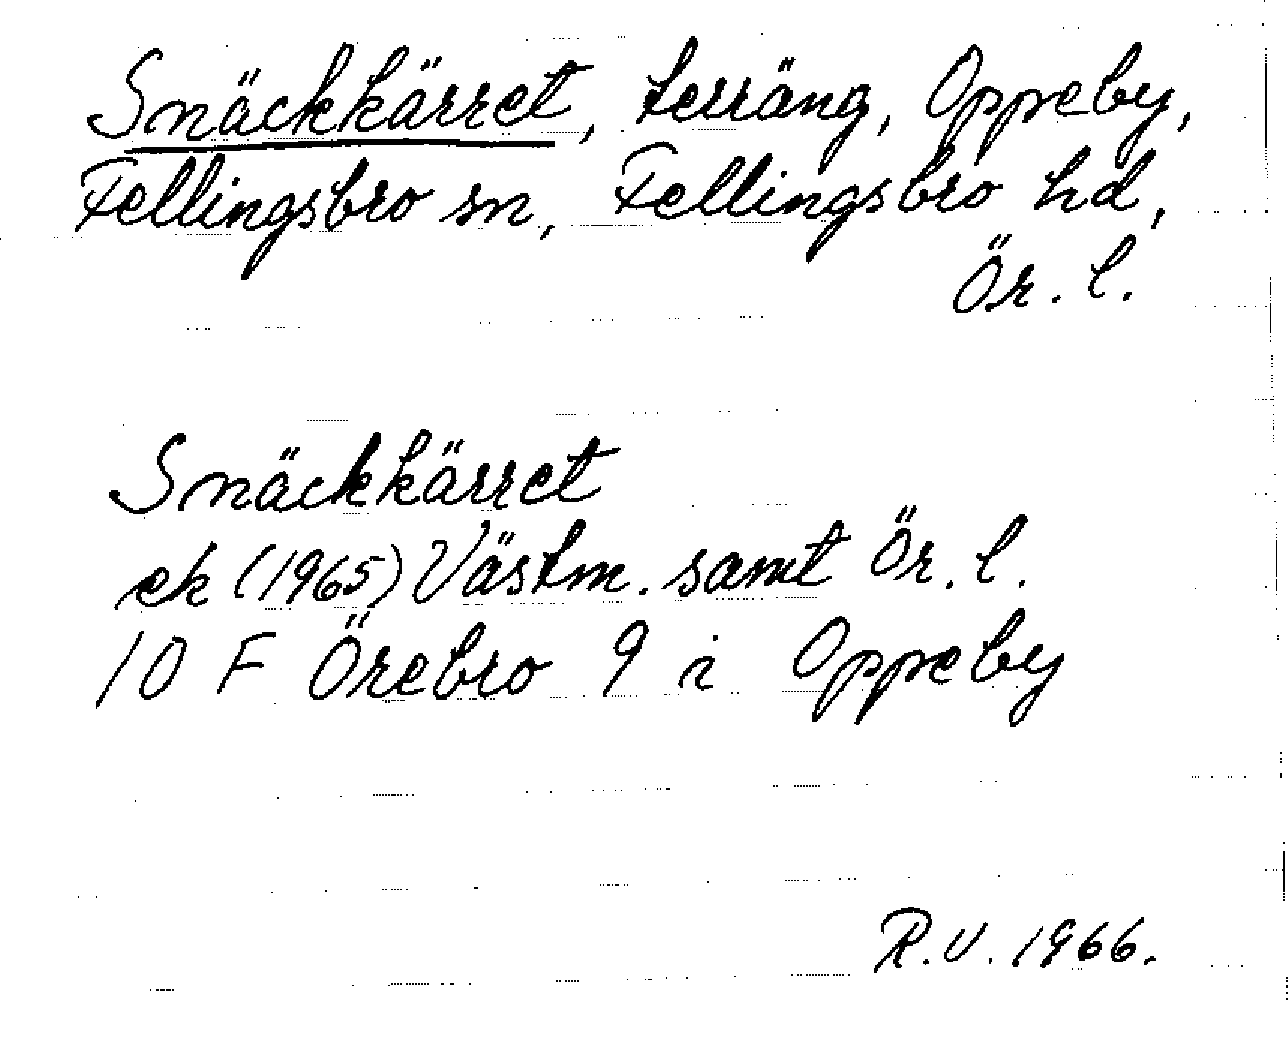 Snäckkärret, terräng, Oppeby,
Fellingsbro sn, Fellingsbro hd,
Ör. l.
Snäckkärret
ek (1965) Västm. samt Ör. l.
10 F Örebro 9 i Oppeby
R.V. 1966.